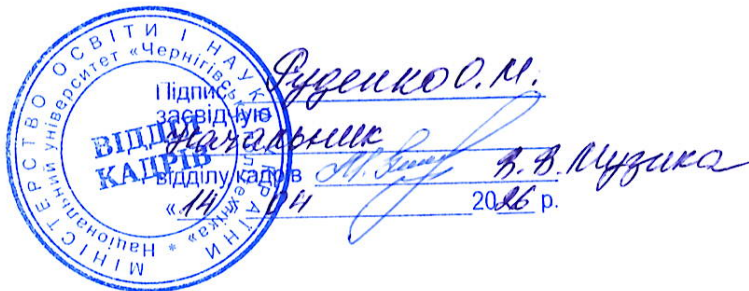 МІНІСТЕРСТВО ОСВІТИ І НАУКИ УКРАЇНИ
Національний університет «Чернігівська політехніка» *
ВІДДІЛ
КАДРІВ
Підпис Руденко О.М.
засвідчую
Начальник
відділу кадрів В.В. Музика
«14» 04 2026 р.